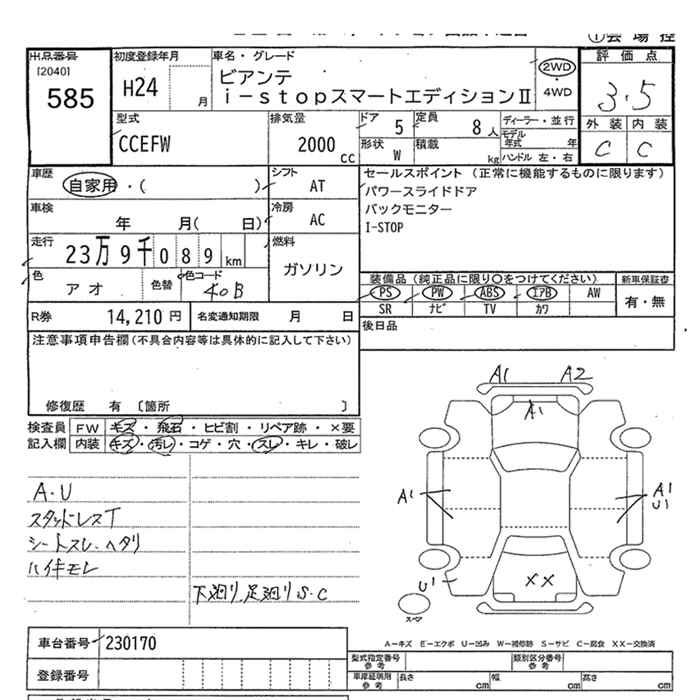 出品番号
[2040]
585
初度登録年月
H24
月
車名・グレード
ビアンテ
i-stopスマートエディションII
2WD
4WD
①会場控
評価点
3.5
外装 内装
C C
型式
CCEFW
排気量
2000 cc
ドア 5
定員 8人
形状 W
積載 kg
ディーラー・並行
モデル年式 年
ハンドル 左・右
車歴
自家用・( )
車検
年 月( 日)
走行
23万9千089km
色
アオ
色替
色コード
40B
シフト
AT
冷房
AC
燃料
ガソリン
セールスポイント (正常に機能するものに限ります)
パワースライドドア
バックモニター
I-STOP
装備品(純正品に限り○をつけてください)
PS PW ABS エアB AW
SR ナビ TV カワ
新車保証書
有・無
R券 14,210円
名変通知期限 月 日
後日品
注意事項申告欄(不具合内容等は具体的に記入して下さい)
修復歴 有 〔箇所 〕
検査員記入欄
FW キズ・飛石・ヒビ割・リペア跡・×要
内装 キズ・汚レ・コゲ・穴・スレ・キレ・破レ
A.U
スタッドレスT
シートスレ.ヘタリ
ハイキモレ
下廻り,足廻りS.C
A1 A2
A1
A1
A1
U1
U1
XX
スペア
A-キズ E-エクボ U-凹み W-補修跡 S-サビ C-腐食 XX-交換済
車台番号 230170
登録番号
型式指定番号 参考
類別区分番号 参考
車庫証明用 参考
長さ cm
幅 cm
高さ cm